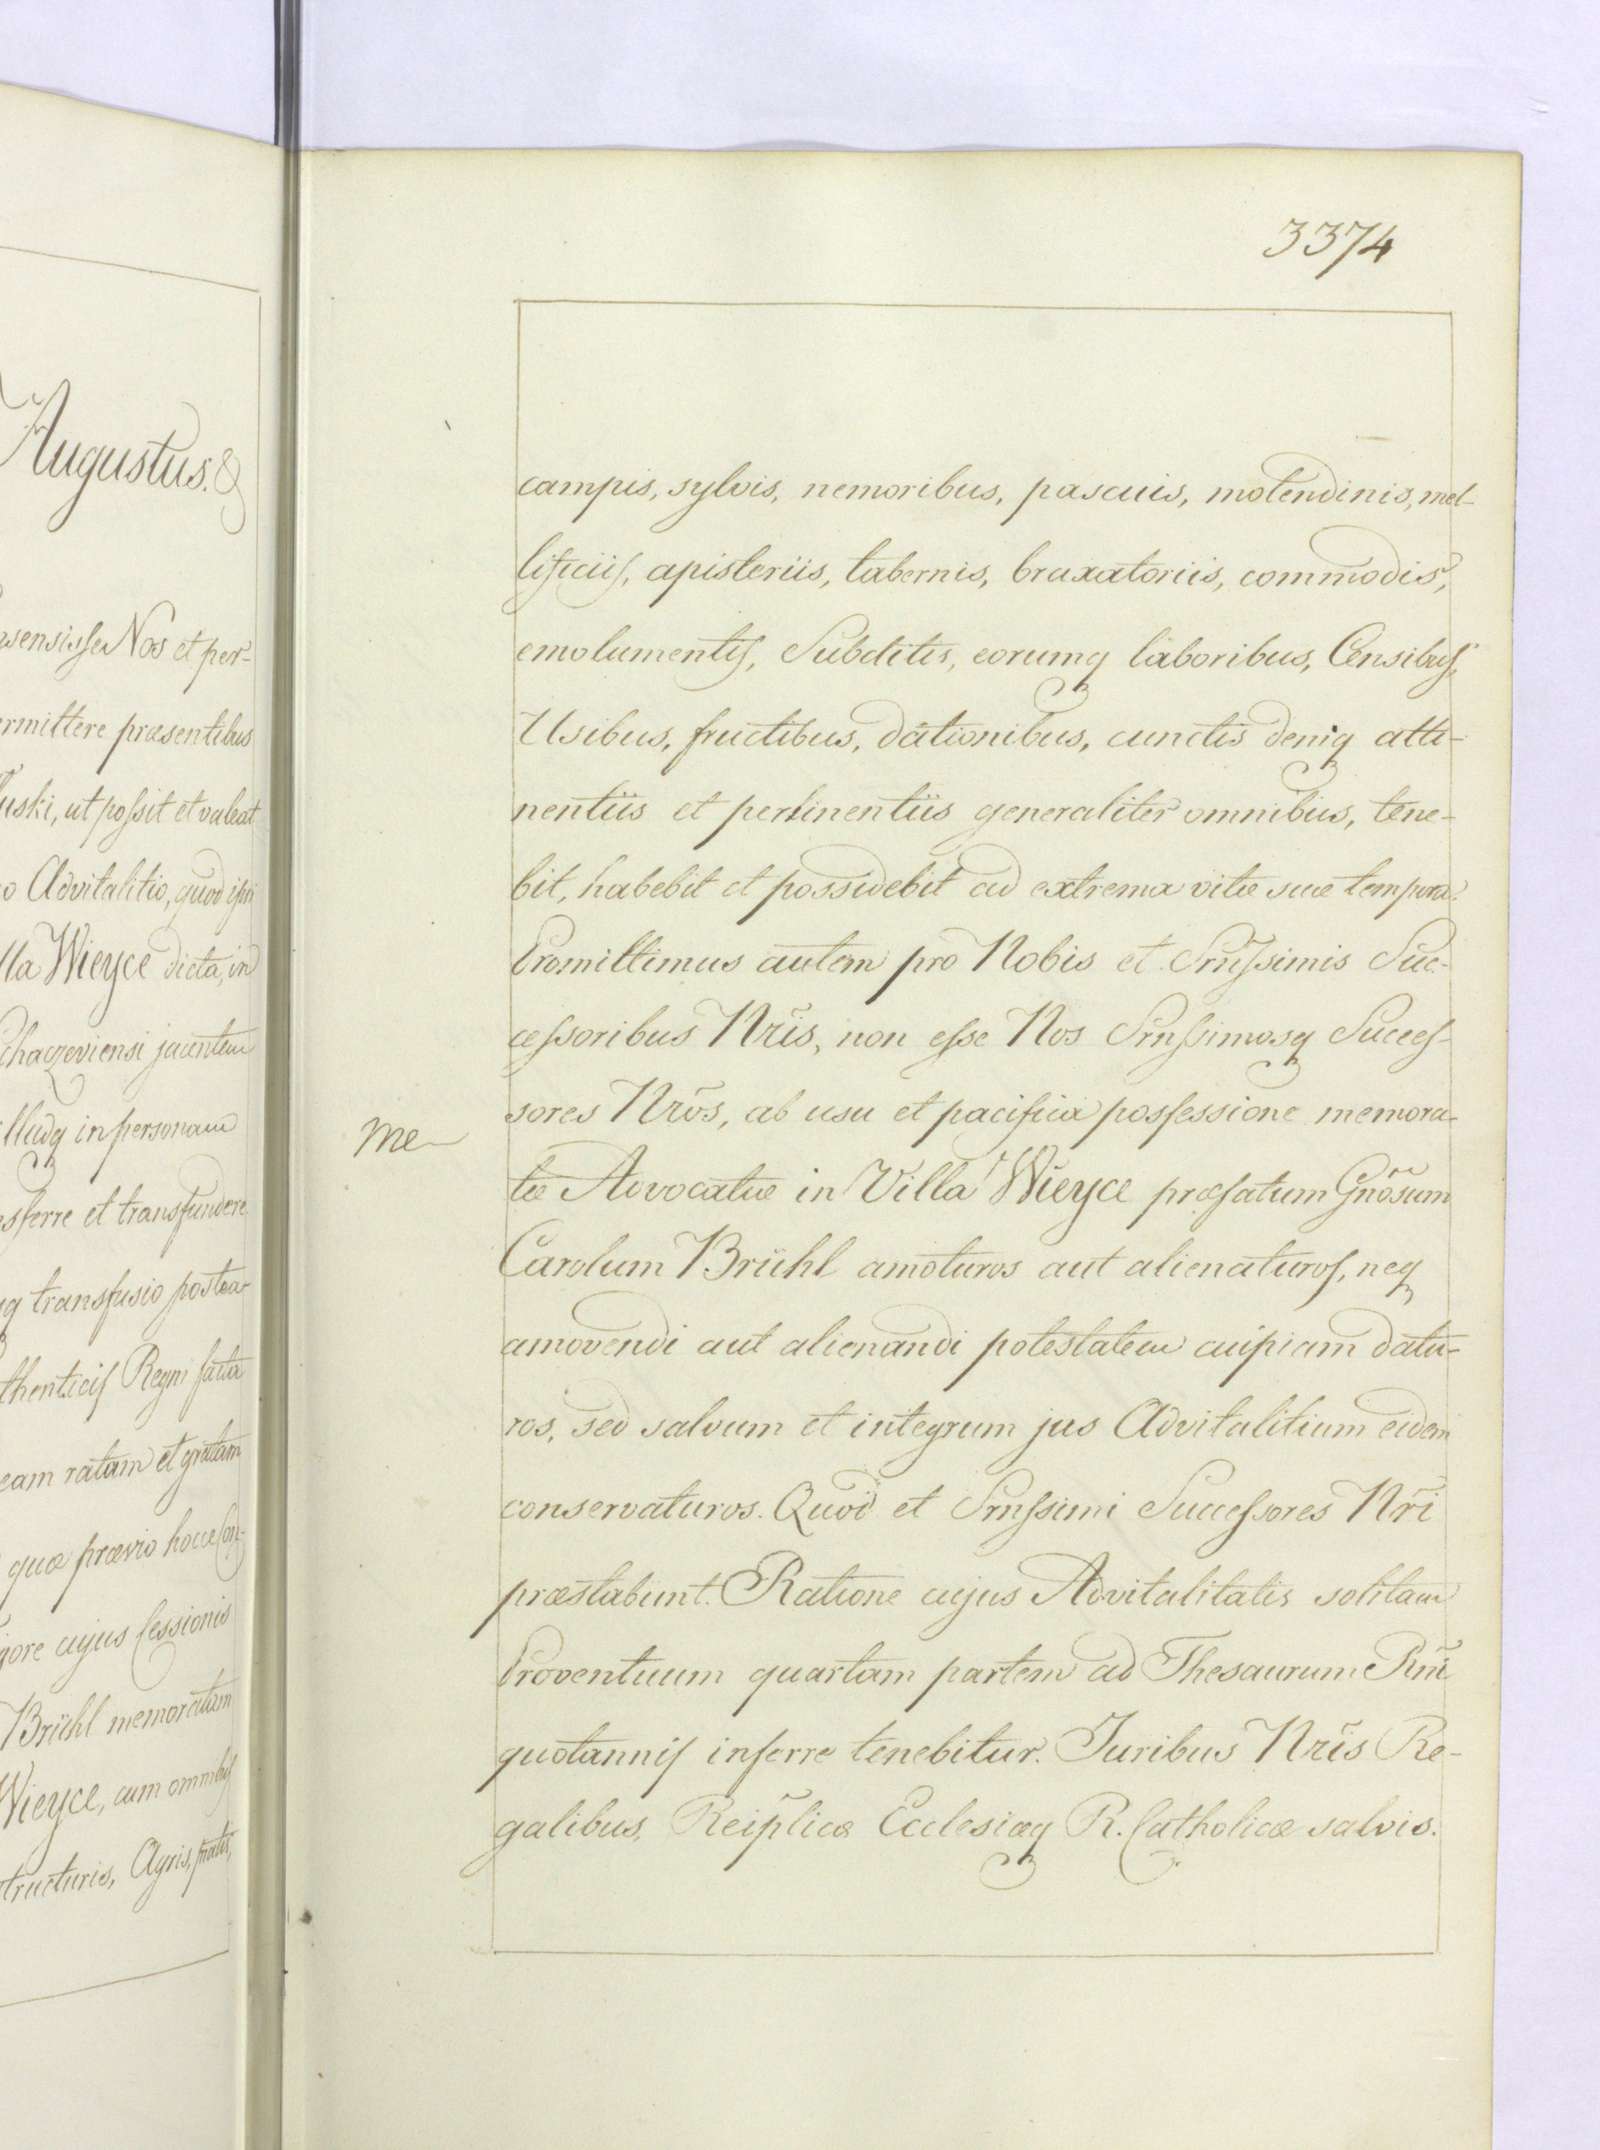 Augustus. &
nsensisse Nos et per-
ermittere præsentibus
uski, ut possit et valeat
o Advitalitio, quod ipsi
lla Wieyce dicta, in
chaczeviensi jacentem
illudq in personam
nsferre et transfundere
q transfusio postea
thenticis Regni facta
eam ratam et gratam
quæ prævio hocce Con-
gore cujus Cessionis
Brühl memoratam
Wieyce, cum omnibus
tructuris, Agris, pratis,
3374
campis, sylvis, nemoribus, pascuis, molendinis, mel-
lificiis, apisteriis, tabernis, braxatoriis, commodis,
emolumentis, Subditis, eorumq laboribus, Censibus,
Usibus, fructibus, dationibus, cunctis deniq atti-
nentiis et pertinentiis generaliter omnibus, tene-
bit, habebit et possidebit ad extrema vitæ suæ tempora.
Promittimus autem pro Nobis et Srnissimis Suc-
cessoribus Nris, non esse Nos Srnssimosq Succes-
sores Nros, ab usu et pacifica possessione memora-
me
tæ Advocatiæ in Villa Wieyce præfatum Gnosum
Carolum Brühl amoturos aut alienaturos, neq
amovendi aut alienandi potestatem cuipiam datu-
ros, sed salvum et integrum jus Advitalitium eidem
conservaturos. Quod et Srnssimi Successores Nri
præstabunt. Ratione cujus Advitalitatis solitam
Proventuum quartam partem ad Thesaurum Rni
quotannis inferre tenebitur. Juribus Nris Re-
galibus, Reiplicæ Ecclesiæq R. Catholicæ salvis.